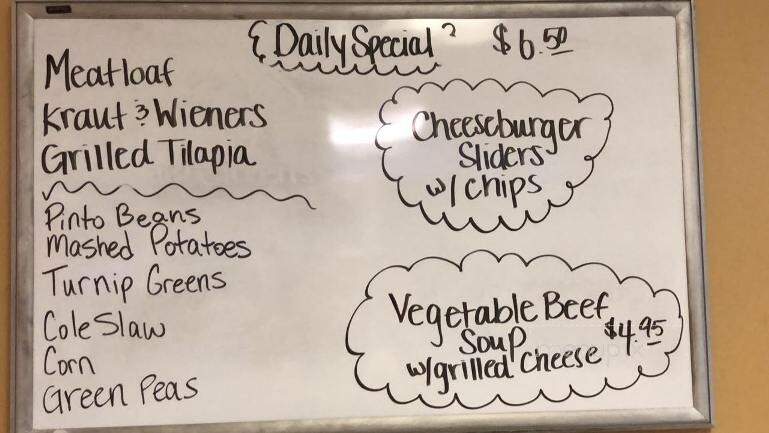 { Daily Special } $6.50
Meatloaf
Kraut & Wieners
Grilled Tilapia
Pinto Beans
Mashed Potatoes
Turnip Greens
Cole Slaw
Corn
Green Peas
Cheeseburger
Sliders
w/ chips
Vegetable Beef
Soup $4.95
w/grilled cheese